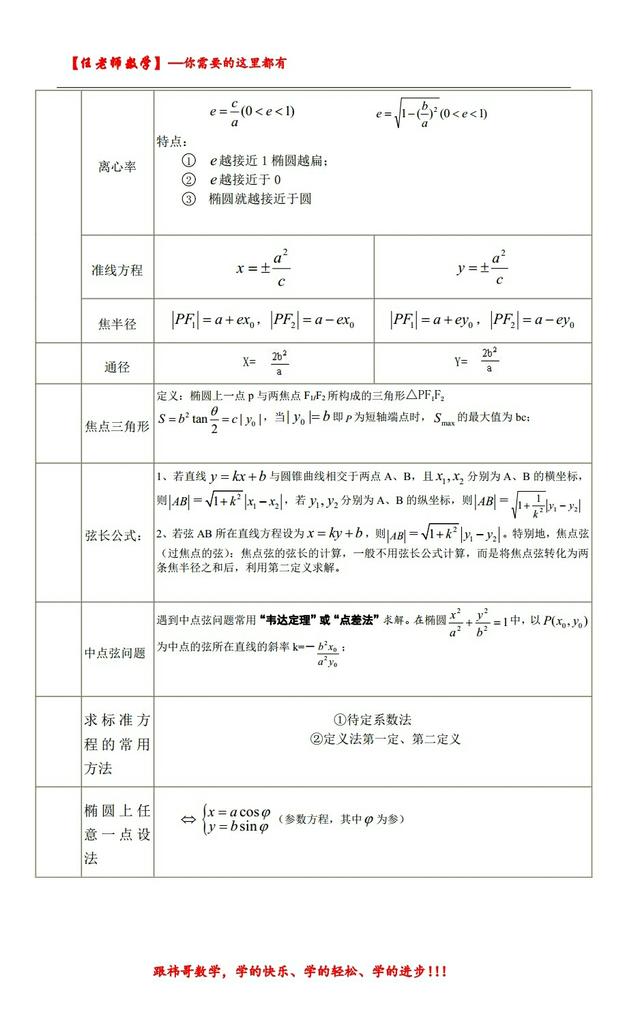 【任老师数学】—你需要的这里都有
离心率
e=c/a(0<e<1)
e=√(1-(b/a)²)(0<e<1)
特点：
① e越接近 1 椭圆越扁；
② e越接近于 0
③ 椭圆就越接近于圆
准线方程
x=±a²/c
y=±a²/c
焦半径
|PF₁|=a+ex₀，|PF₂|=a−ex₀
|PF₁|=a+ey₀，|PF₂|=a−ey₀
通径
X= 2b²/a
Y= 2b²/a
焦点三角形
定义：椭圆上一点 p 与两焦点 F₁,F₂ 所构成的三角形△PF₁F₂
S=b²tan θ/2=c|y₀|，当|y₀|=b 即 P 为短轴端点时，Smax 的最大值为 bc；
弦长公式：
1、若直线 y=kx+b 与圆锥曲线相交于两点 A、B，且 x₁,x₂ 分别为 A、B 的横坐标，
则|AB|=√(1+k²)|x₁−x₂|，若 y₁,y₂ 分别为 A、B 的纵坐标，则|AB|=√(1+1/k²)|y₁−y₂|
2、若弦 AB 所在直线方程设为 x=ky+b，则|AB|=√(1+k²)|y₁−y₂|。特别地，焦点弦
（过焦点的弦）：焦点弦的弦长的计算，一般不用弦长公式计算，而是将焦点弦转化为两
条焦半径之和后，利用第二定义求解。
中点弦问题
遇到中点弦问题常用“韦达定理”或“点差法”求解。在椭圆x²/a²+y²/b²=1中，以 P(x₀,y₀)
为中点的弦所在直线的斜率 k=−b²x₀/a²y₀；
求标准方
程的常用
方法
①待定系数法
②定义法第一定、第二定义
椭圆上任
意一点设
法
⇔{x=acosφ
y=bsinφ（参数方程，其中φ为参）
跟祎哥数学，学的快乐、学的轻松、学的进步!!!